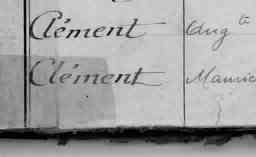 Clément Augte
Clément Mauric